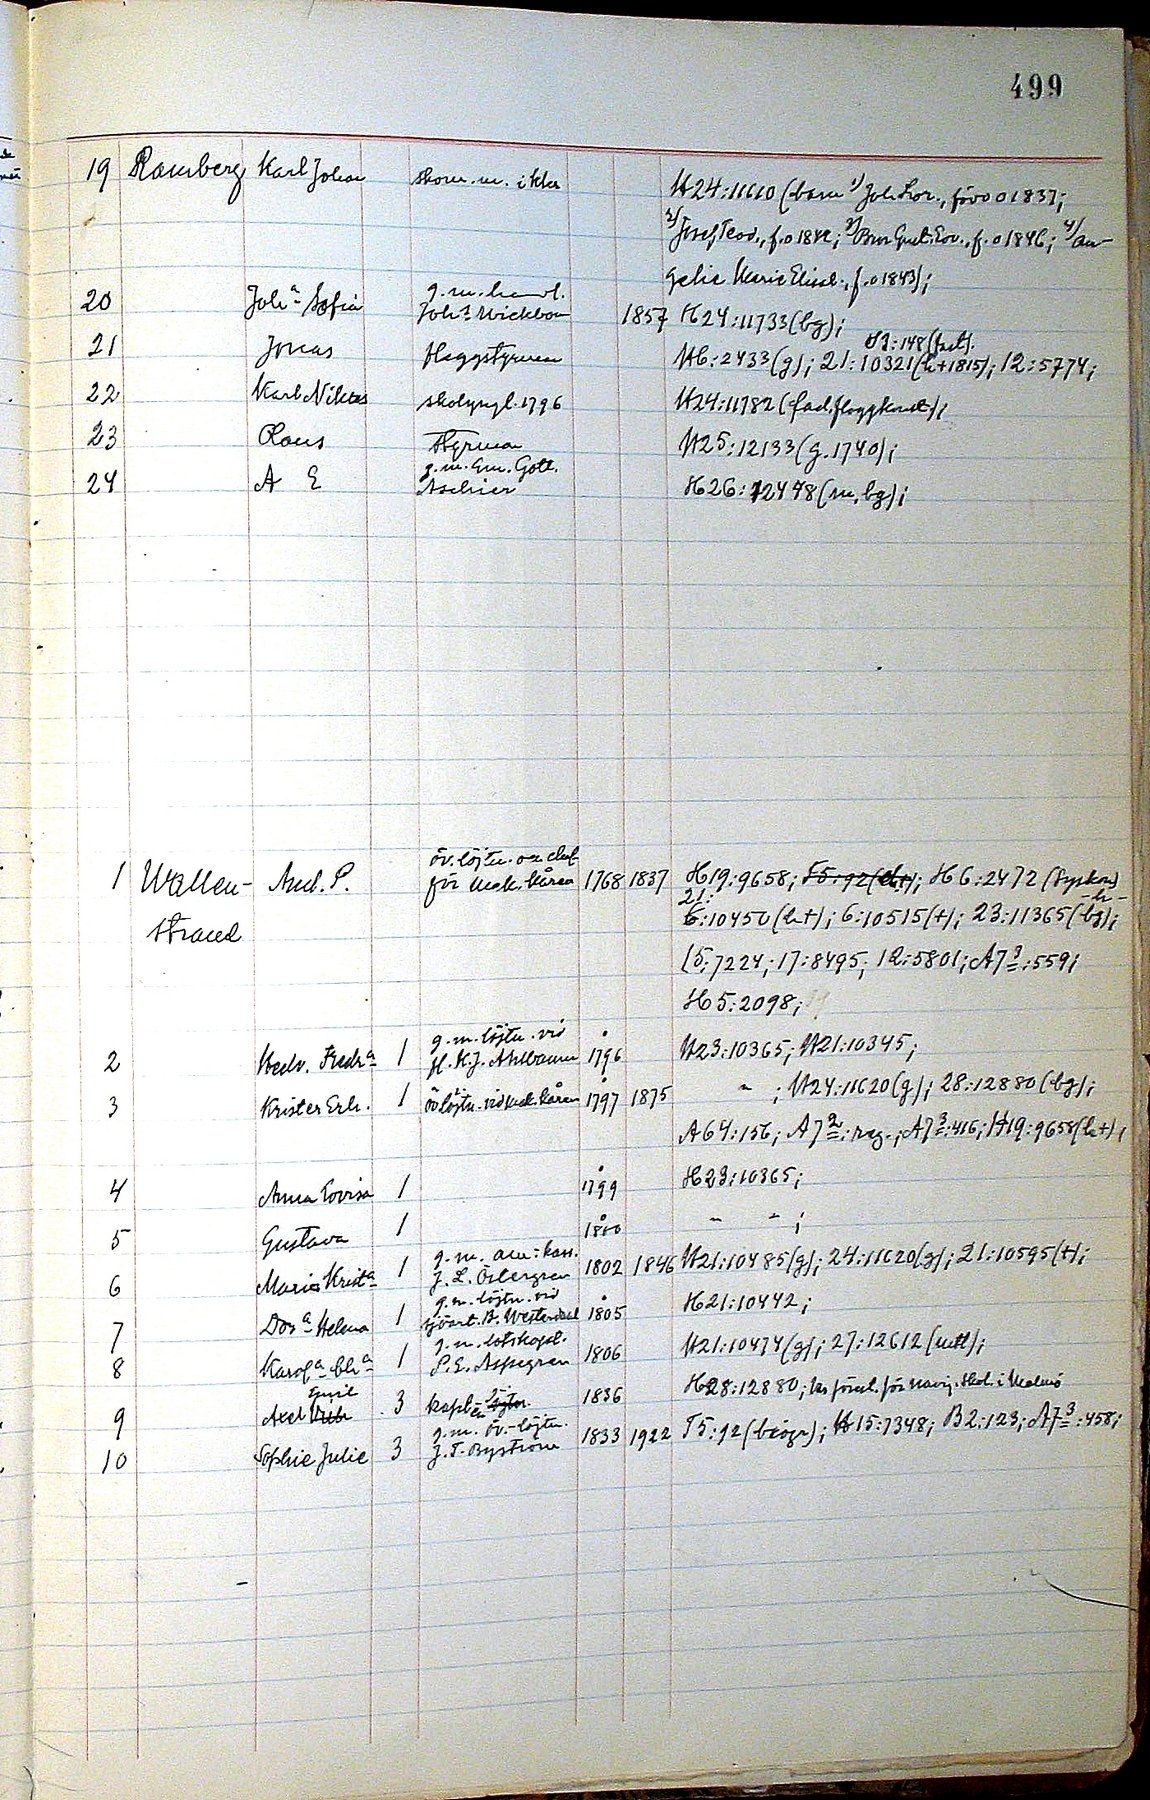 499
19 Ramberg Karl Johan skom. m. i kla H24:11610 (barn 1) Joh. Lor., född 01837;
2) Josef Teod., f. 01842; 3) Bror Gust. Edv., f. 01846; 4) An-
gelic Maria Elisab., f. 01843);
20 Joh:a Sofia g. m. handl. Joh:s Wickbom 1857 H24:11733 (bg);
H1:148 (fast).
21 Jonas Höggstyrman H6:2433 (g); 21:10321 (h+1815); 12:5774;
22 Karl Niklas skolyngl. 1796 H24:11782 (fad. flaggkonst);
23 Olaus Styrman H25:12133 (g. 1740);
24 A E g. m. Em. Gott. Aschier H26:12448 (m, bg);
1 Wallen- And. P. öv. löjtn. och chef för mek. kåren 1768 1837 H19:9658; T5:92 (h+); H6:2472 (syskon)
21: -h-
strand 6:10450 (h+); 6:10515 (+); 23:11365 (bg);
15:7224; 17:8495; 12:5801; A7 3:559;
H5:2098;
2 Hedv. Fredr:a 1 g. m. löjtn. vid fl. K. J. Ahlbaum 1796 H23:10365; H21:10345;
3 Krister Erh. 1 öv löjtn. vid mek. kåren 1797 1875 " ; H24:11620 (g); 28:12880 (bg);
A64:156; A7 2: reg.; A7 3:416; H19:9658 (h+);
4 Anna Lovisa 1 1799 H23:10365;
5 Gustava 1 1800 " " ;
6 Maria Krist:a 1 g. m. am:kass. J. L. Östergren 1802 1846 H21:10485 (g); 24:11620 (g); 21:10595 (+);
7 Dor:a Helena 1 g. m. löjtn. vid sjöart. B. Westerdahl 1805 H21:10442;
8 Karol:a Chr:a 1 g. m. lotskapt. P. E. Aspegren 1806 H21:10474 (g); 27:12612 (utl);
9 Axel Emil 3 kapten 1836 H28:12880; los förest. för navig. skol. i Malmö
10 Sophie Julie 3 g. m. öv.-löjtn. J. T. Byström 1833 1922 T5:92 (biogr); H15:7348; B2:123; A7 3:458;